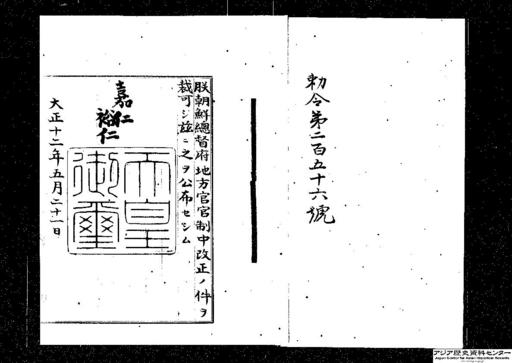 勅令第二百五十六號
朕朝鮮總督府地方官官制中改正ノ件ヲ
裁可シ茲ニ之ヲ公布セシム
嘉仁
裕仁
天皇
御璽
大正十二年五月二十一日
アジア歴史資料センター
Japan Center for Asian Historical Records